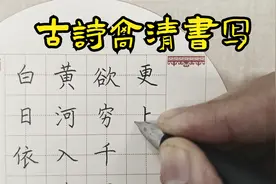 古詩高清書写
白日依
黄河入
欲穷千
更上